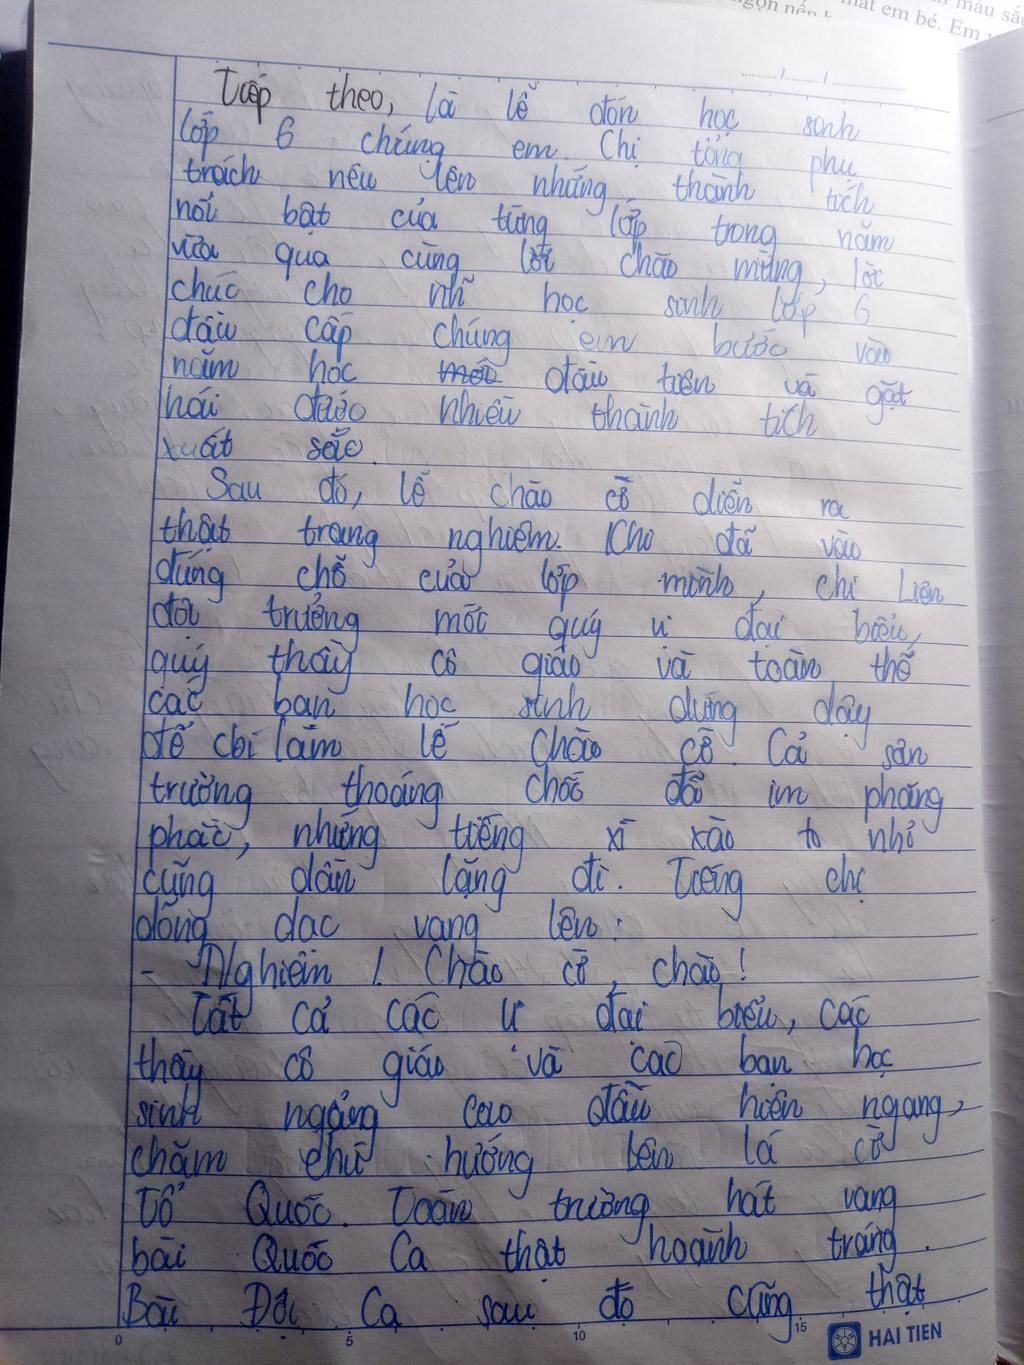 ngọn nến
mắt em bé. Em
màu sắc
Tiếp theo, là lễ đón học sinh
lớp 6 chúng em. Chị tổng phụ
trách nêu lên những thành tích
nổi bật của từng lớp trong năm
vừa qua cùng lời chào mừng, lời
chúc cho những học sinh lớp 6
đầu cấp chúng em bước vào
năm học mới đầu tiên và gặt
hái được nhiều thành tích
xuất sắc.
Sau đó, lễ chào cờ diễn ra
thật trang nghiêm. Khi đã vào
đúng chỗ của lớp mình, chị Liên
đội trưởng mời quý vị đại biểu,
quý thầy cô giáo và toàn thể
các bạn học sinh đứng dậy
để chị làm lễ chào cờ. Cả sân
trường thoáng chốc đã im phăng
phắc, những tiếng xì xào to nhỏ
cũng dần lặng đi. Tiếng chị
dõng dạc vang lên:
- Nghiêm! Chào cờ, chào!
Tất cả các vị đại biểu, các
thầy cô giáo và các bạn học
sinh ngẩng cao đầu hiên ngang,
chăm chú hướng lên lá cờ
Tổ Quốc. Toàn trường hát vang
bài Quốc Ca thật hoành tráng.
Bài Đội Ca sau đó cũng thật
0 5 10 15
HAI TIEN